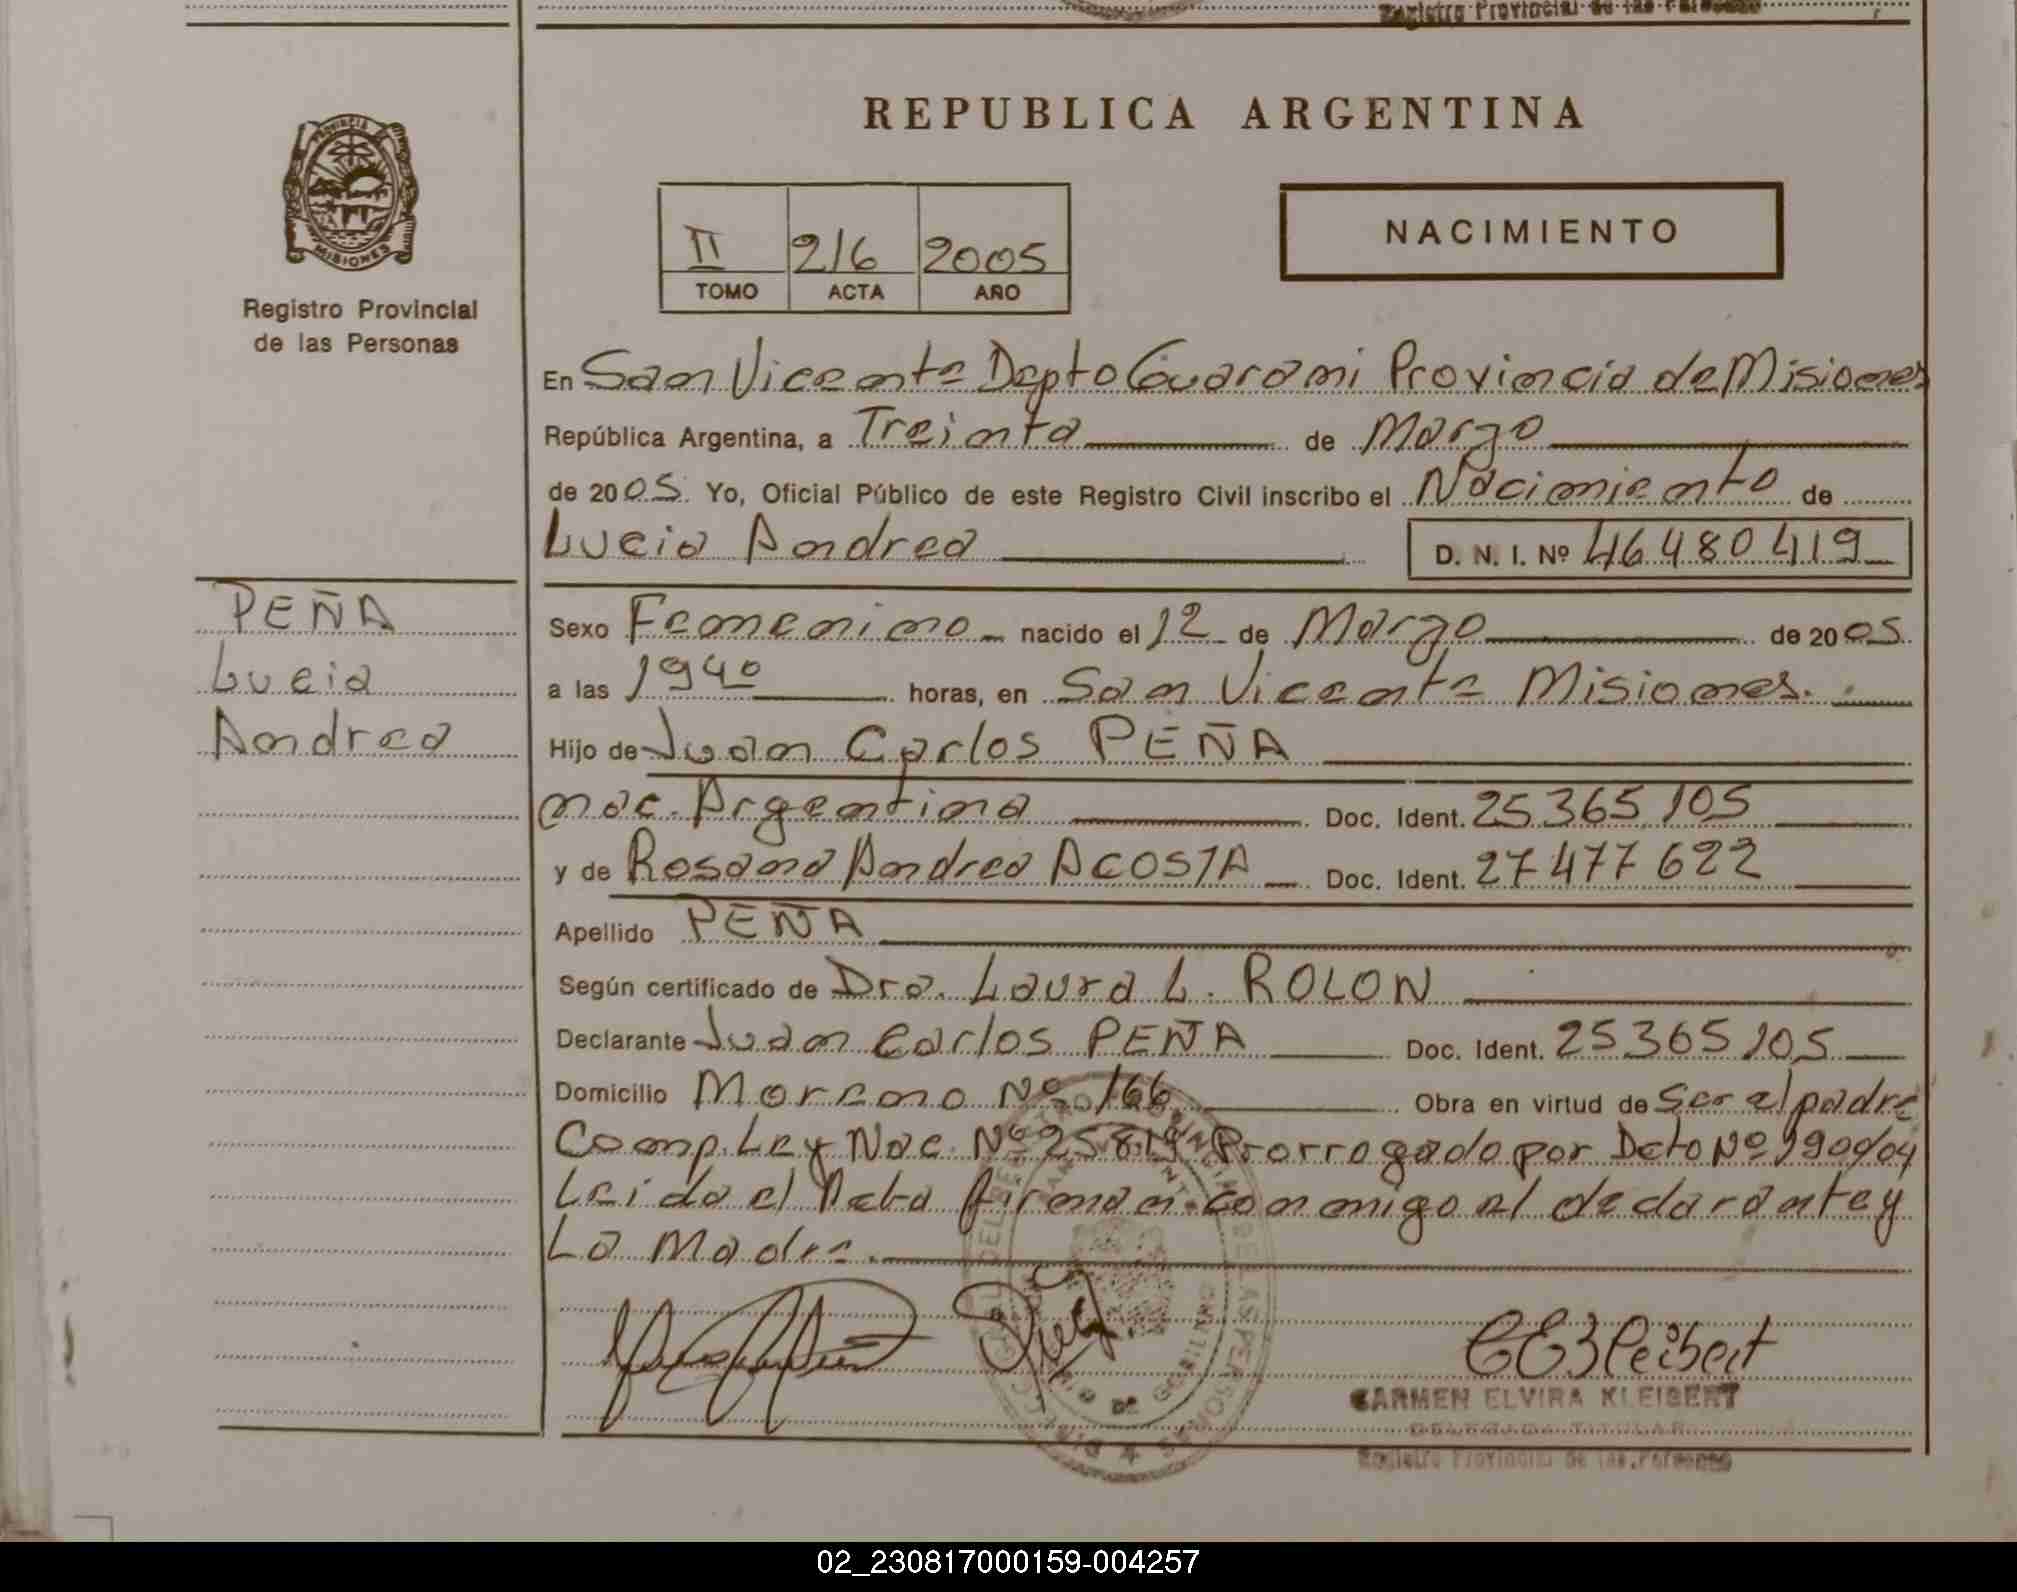 Registro Provincial de las Personas
REPUBLICA ARGENTINA
PROVINCIA DE
MISIONES
Registro Provincial
de las Personas
II 216 2005
TOMO ACTA AÑO
NACIMIENTO
En San Vicente Depto Guarani Provincia de Misiones
República Argentina, a Treinta de Marzo
de 2005. Yo, Oficial Público de este Registro Civil inscribo el Nacimiento de
Lucia Andrea D. N. I. Nº 46480419
PEÑA
Lucia
Andrea
Sexo Femenino nacido el 12 de Marzo de 2005
a las 1940 horas, en San Vicente Misiones.
Hijo de Juan Carlos PEÑA
nac. Argentina Doc. Ident. 25365105
y de Rosana Andrea ACOSTA Doc. Ident. 27477622
Apellido PEÑA
Según certificado de Dra. Laura L. ROLON
Declarante Juan Carlos PEÑA Doc. Ident. 25365105
Domicilio Moreno Nº 166 Obra en virtud de Ser el padre
Comp. Ley Nac. Nº 25819 Prorrogado por Dcto Nº 190/04
Leida el Acta firman conmigo el declarante y
La Madre.
CEKleibert
CARMEN ELVIRA KLEIBERT
DELEGADA TITULAR
Registro Provincial de las Personas
02_230817000159-004257